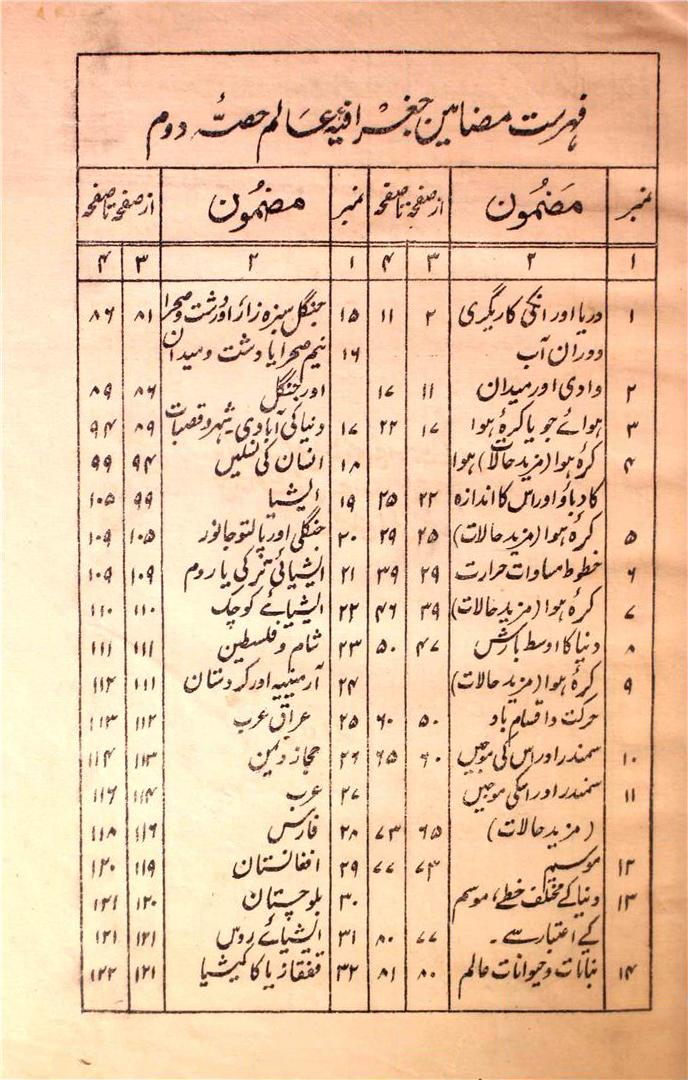 فہرست مضامین جغرافیۂ عالم حصۂ دوم
نمبر مضمون از صفحہ تا صفحہ نمبر مضمون از صفحہ تا صفحہ
۱ ۲ ۳ ۴ ۱ ۲ ۳ ۴
۱ دریا اور انکی کاریگری ۲ ۱۱ ۱۵ جنگل سبزہ زار اور دشت و صحرا ۸۱ ۸۶
دوران آب ۱۶ نیم صحرا یا دشت و میدان
۲ وادی اور میدان ۱۱ ۱۷ اور جنگل ۸۶ ۸۹
۳ ہوائے جو یا کرۂ ہوا ۱۷ ۲۲ ۱۷ دنیا کی آبادی شہر و قصبات ۸۹ ۹۴
۴ کرۂ ہوا (مزید حالات) ہوا ۱۸ انسان کی نسلیں ۹۴ ۹۹
کا دباؤ اور اس کا اندازہ ۲۲ ۲۵ ۱۹ ایشیا ۹۹ ۱۰۵
۵ کرۂ ہوا (مزید حالات) ۲۵ ۲۹ ۲۰ جنگلی اور پالتو جانور ۱۰۵ ۱۰۹
۶ خطوط مساوات حرارت ۲۹ ۳۹ ۲۱ ایشیائی ترکی یا روم ۱۰۹ ۱۰۹
۷ کرۂ ہوا (مزید حالات) ۳۹ ۴۶ ۲۲ ایشیائے کوچک ۱۱۰ ۱۱۰
۸ دنیا کا اوسط بارش ۴۷ ۵۰ ۲۳ شام و فلسطین ۱۱۱ ۱۱۱
۹ کرۂ ہوا (مزید حالات) ۲۴ آرمینیہ اور کردستان ۱۱۱ ۱۱۲
حرکت و اقسام باد ۵۰ ۶۰ ۲۵ عراق عرب ۱۱۲ ۱۱۳
۱۰ سمندر اور اس کی موجیں ۶۰ ۶۵ ۲۶ حجاز و یمن ۱۱۳ ۱۱۴
۱۱ سمندر اور اسکی موجیں ۲۷ عرب ۱۱۴ ۱۱۶
(مزید حالات) ۶۵ ۷۳ ۲۸ فارس ۱۱۶ ۱۱۸
۱۲ موسم ۷۳ ۷۷ ۲۹ افغانستان ۱۱۹ ۱۲۰
۱۳ دنیا کے مختلف خطے، موسم ۳۰ بلوچستان ۱۲۰ ۱۲۱
کے اعتبار سے۔ ۷۷ ۸۰ ۳۱ ایشیائے روس ۱۲۱ ۱۲۱
۱۴ نباتات و حیوانات عالم ۸۰ ۸۱ ۳۲ قفقاز یا کاکیشیا ۱۲۱ ۱۲۲